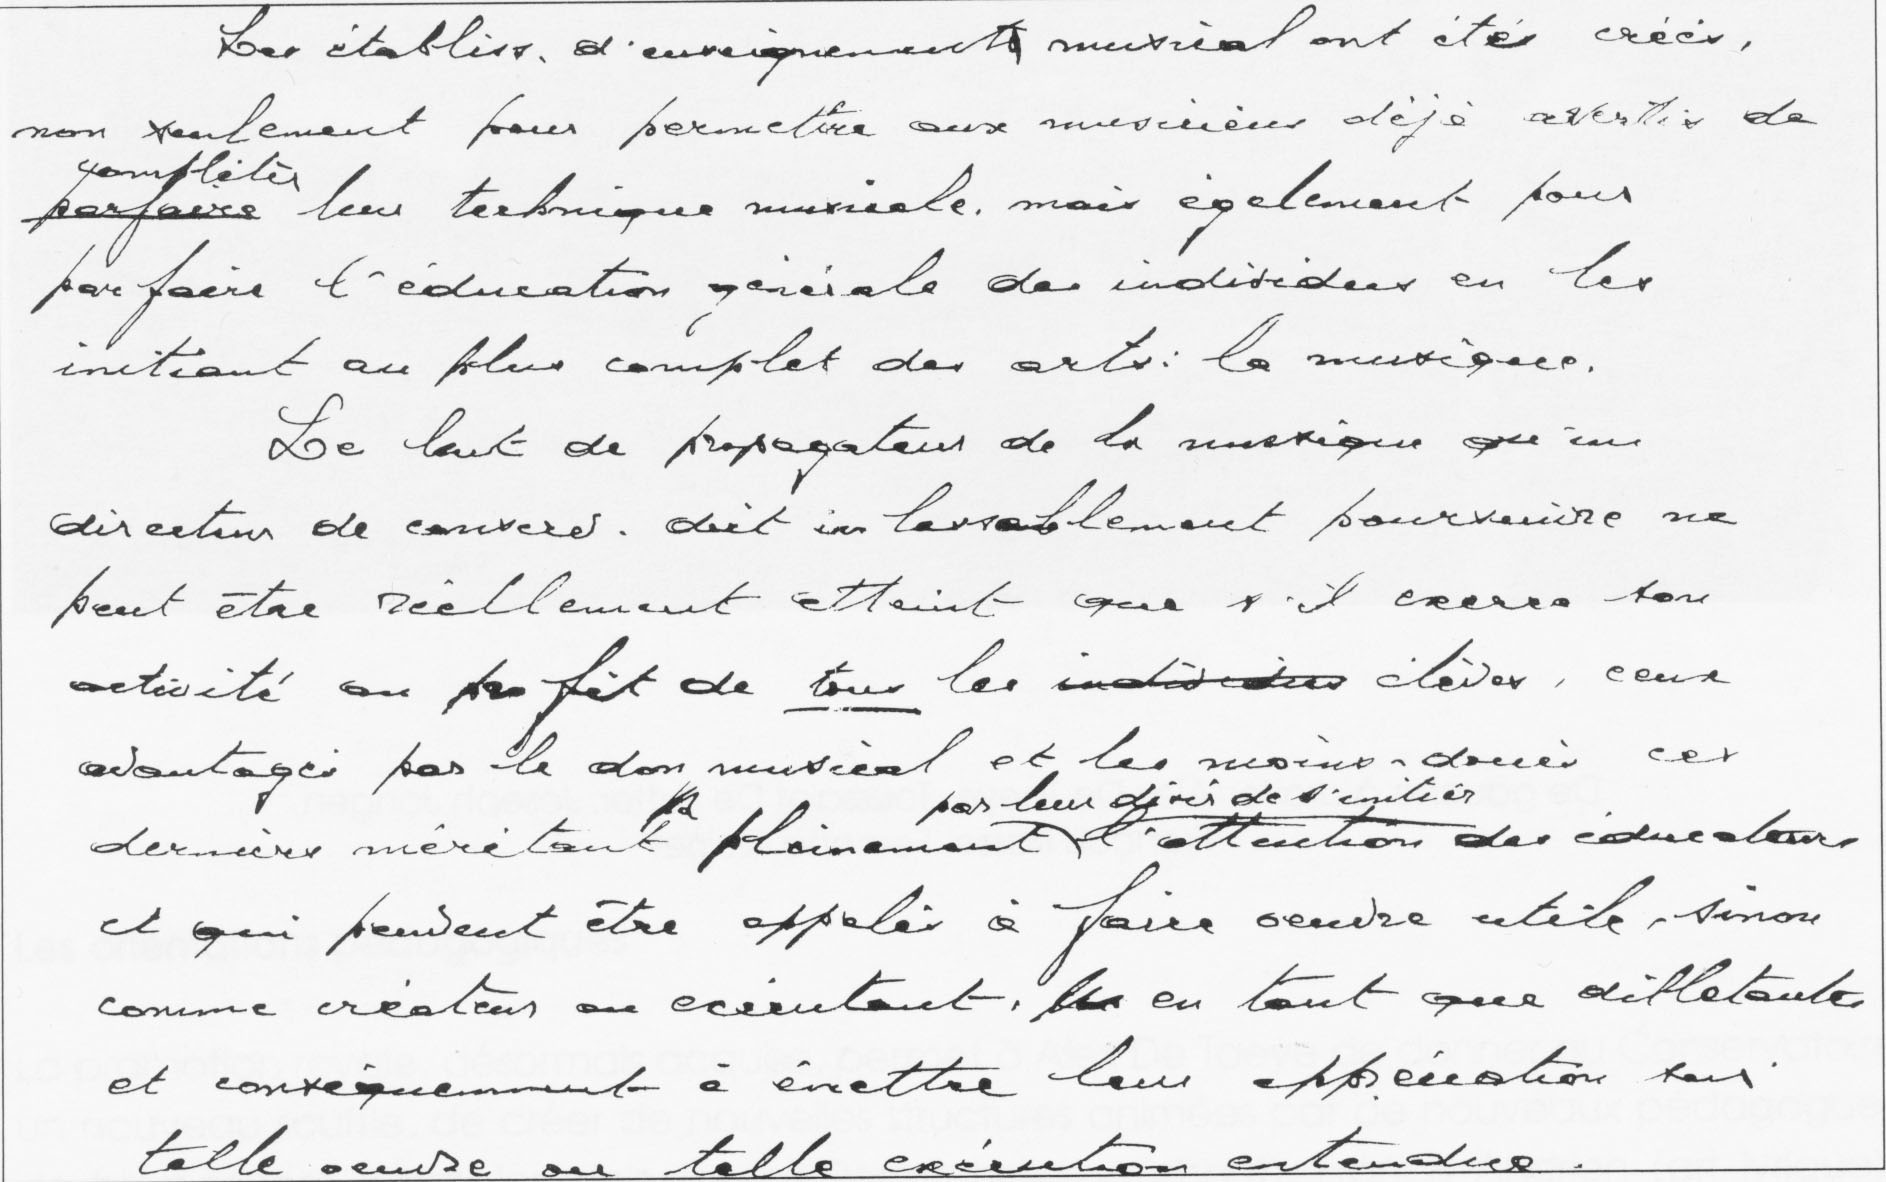 Les établiss. d'enseignements musical ont étés créés,
non seulement pour permettre aux musiciens déjà avertis de
compléter
parfaire leur technique musicale, mais également pour
parfaire l'éducation générale des individus en les
initiant au plus complet des arts: la musique.
Le but de propagateur de la musique qu'un
directeur de conserv. doit inlassablement poursuivre ne
peut être réellement atteint que s'il exerce son
activité au profit de tous les individus élèves, ceux
avantagés par le don musical et les moins-doués ces
par leur désir de s'initier
derniers méritant pleinement l'attention des éducateurs
et qui peuvent être appelés à faire oeuvre utile, sinon
comme créateur ou exécutant, en tant que dilletantes
et conséquemment à émettre leur appréciation sur
telle oeuvre ou telle exécution entendue.